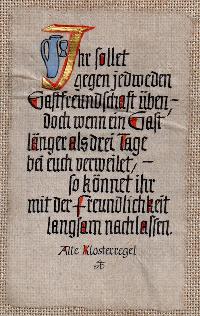 Ihr sollet
gegen jedweden
Gastfreundschaft üben,-
doch wenn ein Gast
länger als drei Tage
bei euch verweilet,-
so könnet ihr
mit der Freundlichkeit
langsam nachlassen.
Alte Klosterregel